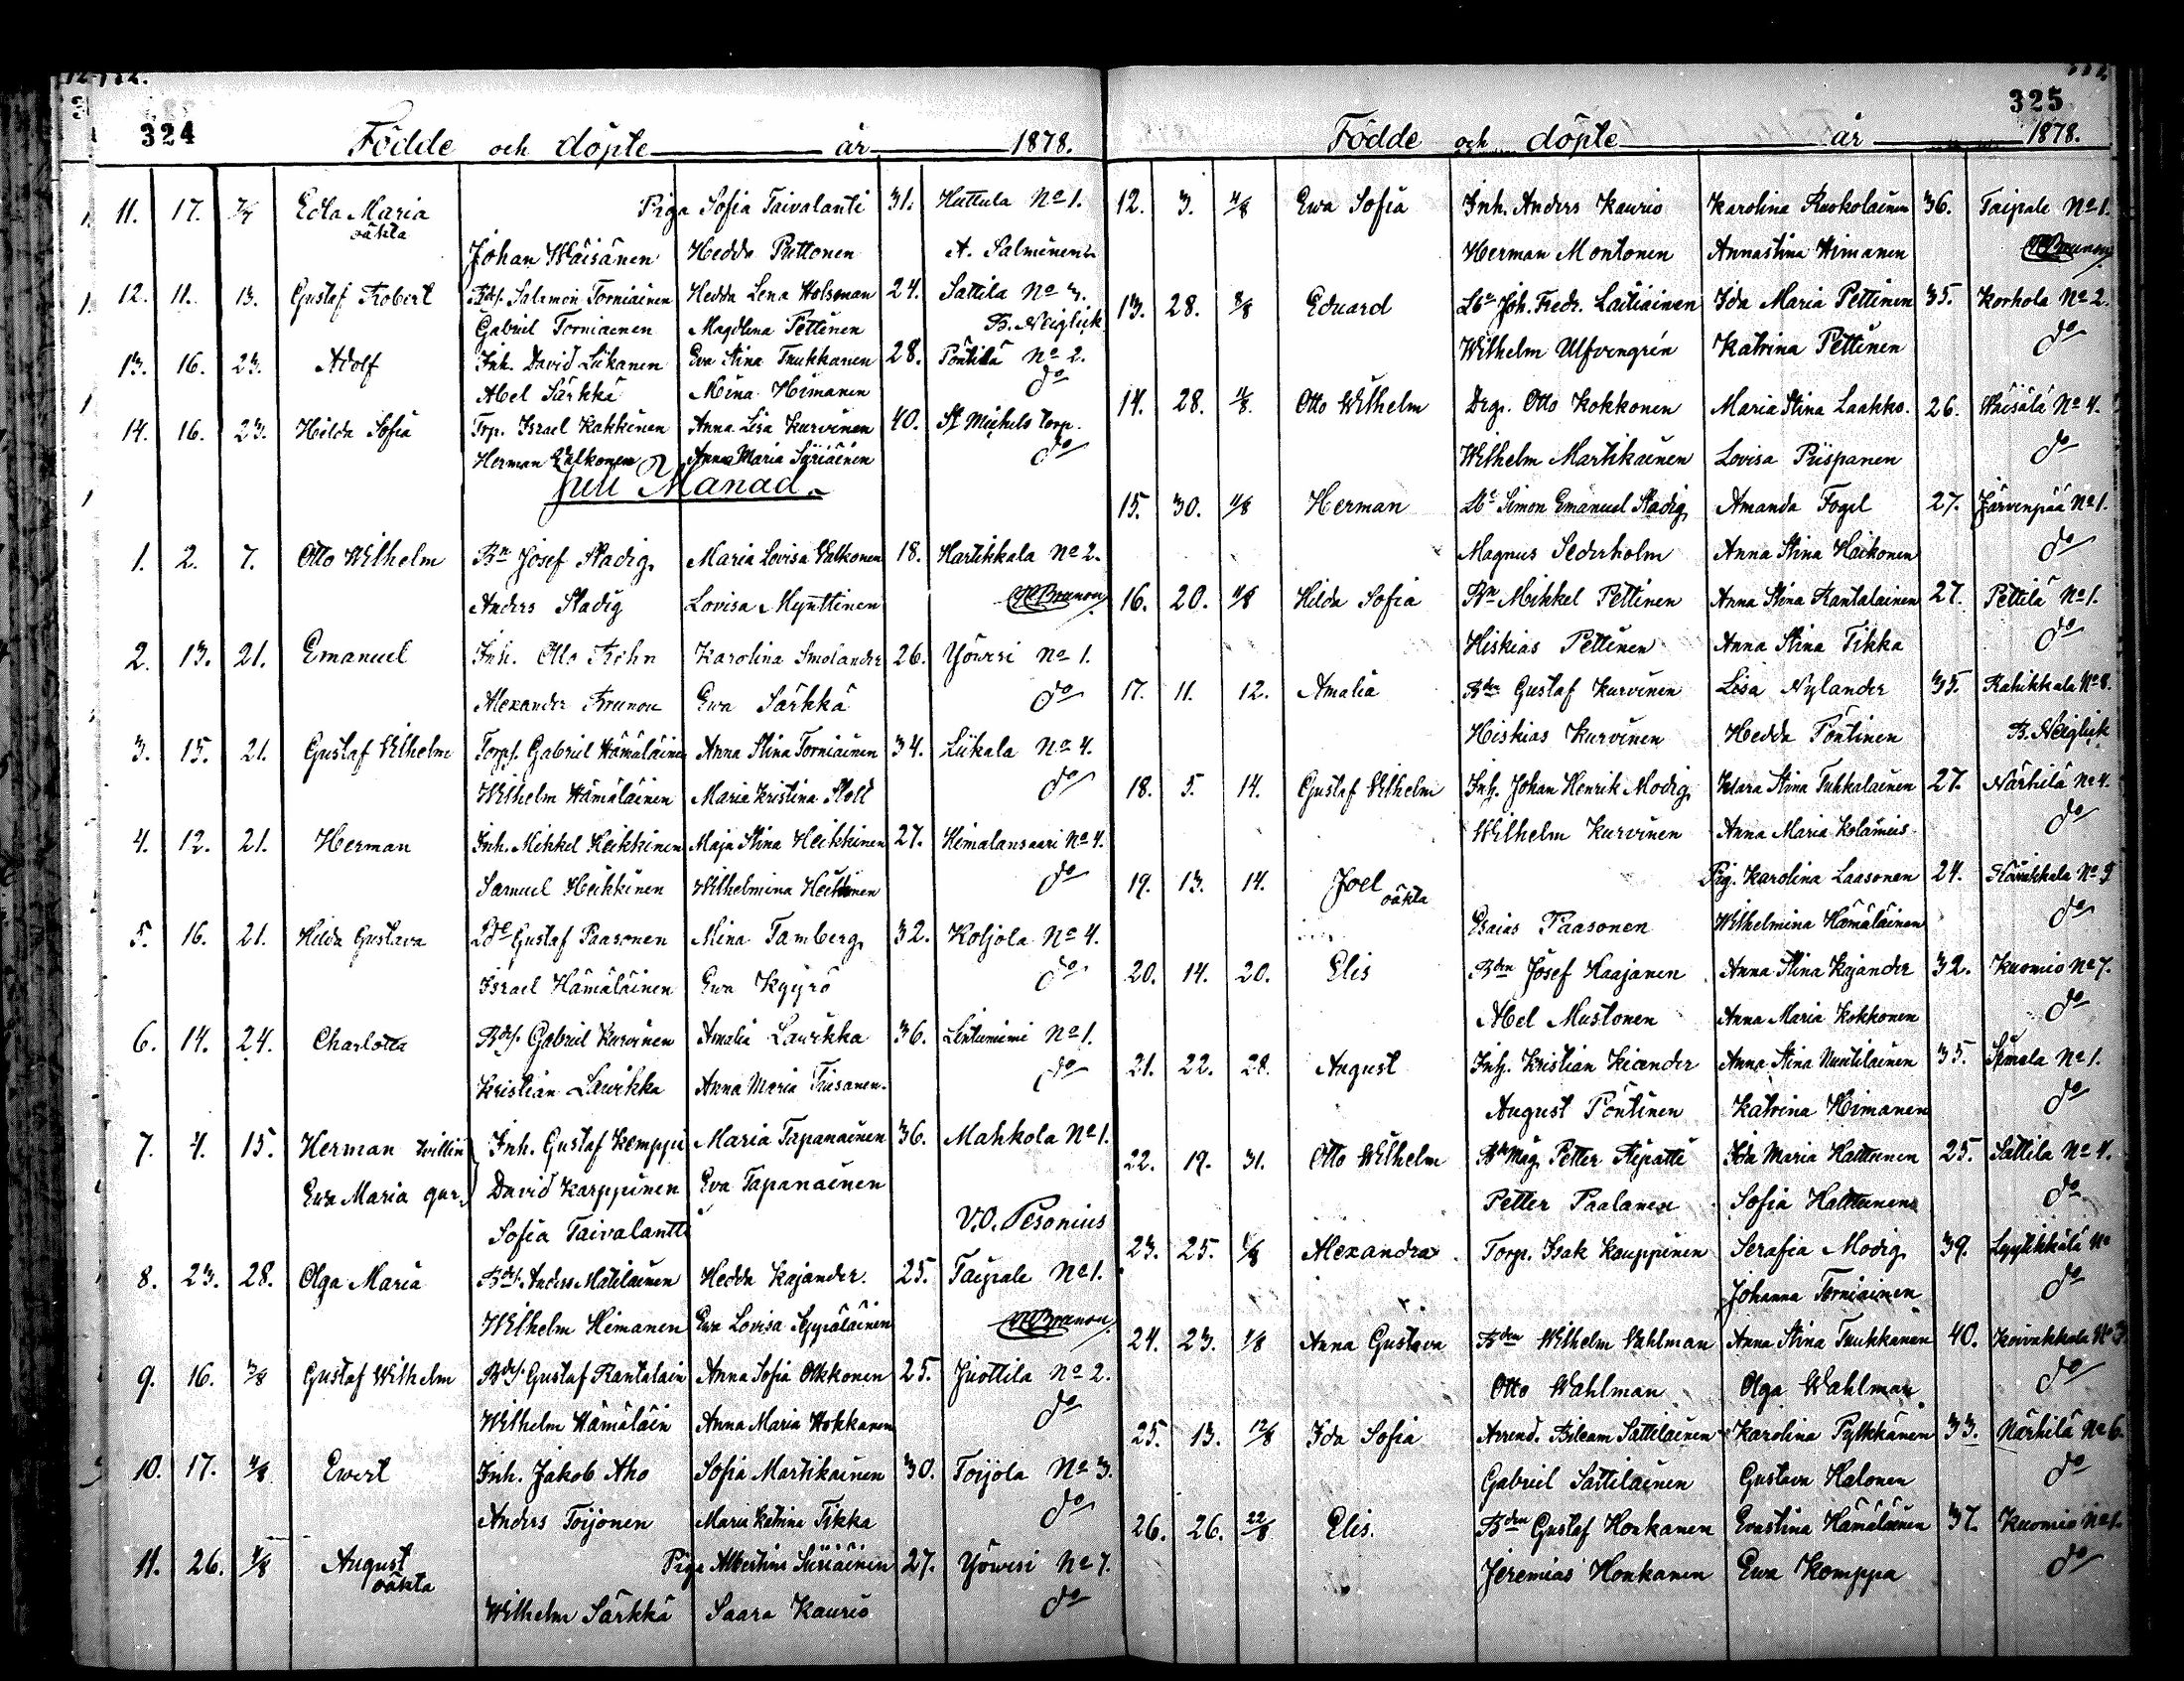 324
Födde och döpte år 1878.
11. 17. 7/7 Edla Maria Piga Sofia Taivalanti 31. Huttula No 1.
oäkta
Johan Wäisänen Hedda Puttonen A. Salminen
12. 11. 13. Gustaf Robert Bds. Salamon Torniainen Hedda Lena Holsman 24. Sattila No 3.
Gabriel Torniainen Magdlena Pettinen B. Neiglick
13. 16. 23. Adolf Inh. David Liikanen Eva Stina Tuukkanen 28. Pöntilä No 2.
Abel Särkkä Mina Himanen do
14. 16. 23. Hilda Sofia Torp. Israel Kakkinen Anna Lisa Kurvinen 40. St Michels torp.
Herman Valkonen Anna Maria Syriäinen do
Juli Månad.
1. 2. 7. Otto Wilhelm Bn Josef Stadig Maria Lovisa Valkonen 18. Hartikkala No 2.
Anders Stadig Lovisa Mynttinen Brunou
2. 13. 21. Emanuel Inh. Otto Frihn Karolina Smolander 26. Yövesi No 1.
Alexander Brunou Ewa Särkkä do
3. 15. 21. Gustaf Vilhelm Torps. Gabriel Hämäläinen Anna Stina Torniainen 34. Liikala No 4.
Wilhelm Hämäläinen Maria Kristina Stolt do
4. 12. 21. Herman Inh. Mikkel Heikkinen Maja Stina Heikkinen 27. Himalansaari No 4.
Samuel Heikkinen Wilhelmina Heikkinen do
5. 16. 21. Hilda Gustava Gustaf Paasonen Mina Tamberg 32. Koljola No 4.
Israel Hämäläinen Ewa Kyyrö do
6. 14. 24. Charlotta Bds. Gabriel Kurvinen Amalia Laurikka 36. Lintuniemi No 1.
Kristian Laurikka Anna Maria Thisanen. do
7. 4. 15. Herman tvillin Inh. Gustaf Kemppi Maria Tapanainen 36. Mahkola No 1.
Ewa Maria gar David Karppinen Eva Tapanainen
Sofia Taivalantti V.O. Pesonius
8. 23. 28. Olga Maria Bds. Anders Matilainen Hedda Kajander. 25. Taipale No 1.
Wilhelm Himanen Ewa Lovisa Seppäläinen Brunou
9. 16. 3/8 Gustaf Wilhelm Bds. Gustaf Rantalain Anna Sofia Olkkonen 25. Juottila No 2.
Wilhelm Hämäläin Anna Maria Hokkanen do
10. 17. 4/8 Evert Inh. Jakob Aho Sofia Martikainen 30. Toijola No 3.
Anders Toijonen Maria Katrina Tikka do
11. 26. 4/8 August Piga Albertina Siiriäinen 27. Yövesi No 7.
oäkta
Wilhelm Särkkä Saara Kaurio do
325
Födde och döpte år 1878.
12. 3. 4/8 Ewa Sofia Inh. Anders Kaurio Karolina Ruokolainen 36. Taipale No 1.
Herman Montonen Annastina Himanen Brunou
13. 28. 8/8 Eduard Joh. Fredr. Laitiainen Ida Maria Pettinen 35. Korhola No 2.
Wilhelm Ulfvengrén Katrina Pettinen do
14. 28. 11/8. Otto Wilhelm Drgs. Otto Kokkonen Maria Stina Laakko. 26. Väisälä No 4.
Wilhelm Martikainen Lovisa Piispanen do
15. 30. 11/8 Herman Simon Emanuel Stadig Amanda Fogel 27. Järvenpää No 1.
Magnus Sederholm Anna Stina Haikonen do
16. 20. 11/8 Hilda Sofia Bn Mikkel Pettinen Anna Stina Rantalainen 27. Pettilä No 1.
Hiskias Pettinen Anna Stina Tikka do
17. 11. 12. Amalia Bden Gustaf Kurvinen Lisa Nylander 35. Rahikkala No 8.
Hiskias Kurvinen Hedda Pöntinen B. Neiglick
18. 5. 14. Gustaf Vilhelm Inh. Johan Henrik Modig Klara Stina Tuhkalainen 27. Närhilä No 4.
Wilhelm Kurvinen Anna Maria Kolämies do
19. 13. 14. Joel Pig. Karolina Laasonen 24.
oäkta
Esaias Paasonen Wilhelmina Hämäläinen do
20. 14. 20. Elis Bden Josef Haajanen Anna Stina Kajander 32. Kuomio No 7.
Abel Mustonen Anna Maria Kokkonen do
21. 22. 28. August Inh. Kristian Kiander Anna Stina Nuutilainen 35. Simola No 1.
August Pöntinen Katrina Himanen do
22. 19. 31. Otto Wilhelm Petter Ripatti Ida Maria Hattunen 25. Sattila No 4.
Petter Paalanen Sofia Hattunen do
23. 25. 1/8 Alexandra Torp. Isak Kauppinen Serafia Modig 39. Lyytikkälä No
Johanna Torniainen do
24. 23. 1/8 Anna Gustava Bden Wilhelm Vahlman Anna Stina Tuukkanen 40. Koivakkala No 3.
Otto Wahlman Olga Wahlman do
25. 13. 12/8 Ida Sofia Arrend. Bileam Sattilainen Karolina Pylkkänen 33. Närhilä No 6.
Gabriel Sattilainen Gustava Halonen do
26. 26. 22/8 Elis. Bden Gustaf Honkanen Evastina Hämäläinen 37. Kuomio No 1.
Jeremias Honkanen Ewa Komppa do